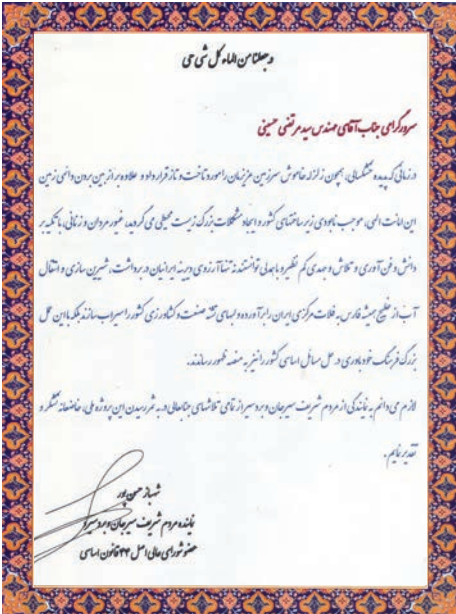 و جعلنا من الماء کل شی حی
سرور گرامی جناب آقای مهندس سید مرتضی حسینی
در زمانی که پدیده خشکسالی، همچون زلزله خاموش سرزمین عزیزمان را مورد تاخت و تاز قرار داد و علاوه بر از بین بردن دائمی زمین
این امانت الهی، موجب نابودی زیر ساختهای کشور و ایجاد مشکلات بزرگ زیست محیطی می گردید، غیور مردان و زنانی، با تکیه بر
دانش و فن آوری و تلاش و جهدی کم نظیر و با همدلی توانستند نه تنها آرزوی دیرینه ایرانیان در برداشت، شیرین سازی و انتقال
آب از خلیج همیشه فارس به فلات مرکزی ایران را برآورده و لبهای تشنه صنعت و کشاورزی کشور را سیراب سازند بلکه با این عمل
بزرگ فرهنگ خودباوری در حل مسائل اساسی کشور را نیز به منصه ظهور رساندند.
لازم می دانم به نمایندگی از مردم شریف سیرجان و بردسیر از تمامی تلاشهای جنابعالی در به ثمر رسیدن این پروژه ملی، خاضعانه تشکر و
تقدیر نمایم.
شهباز حسن پور
نماینده مردم شریف سیرجان و بردسیر
عضو شورای عالی اصل ۴۴ قانون اساسی